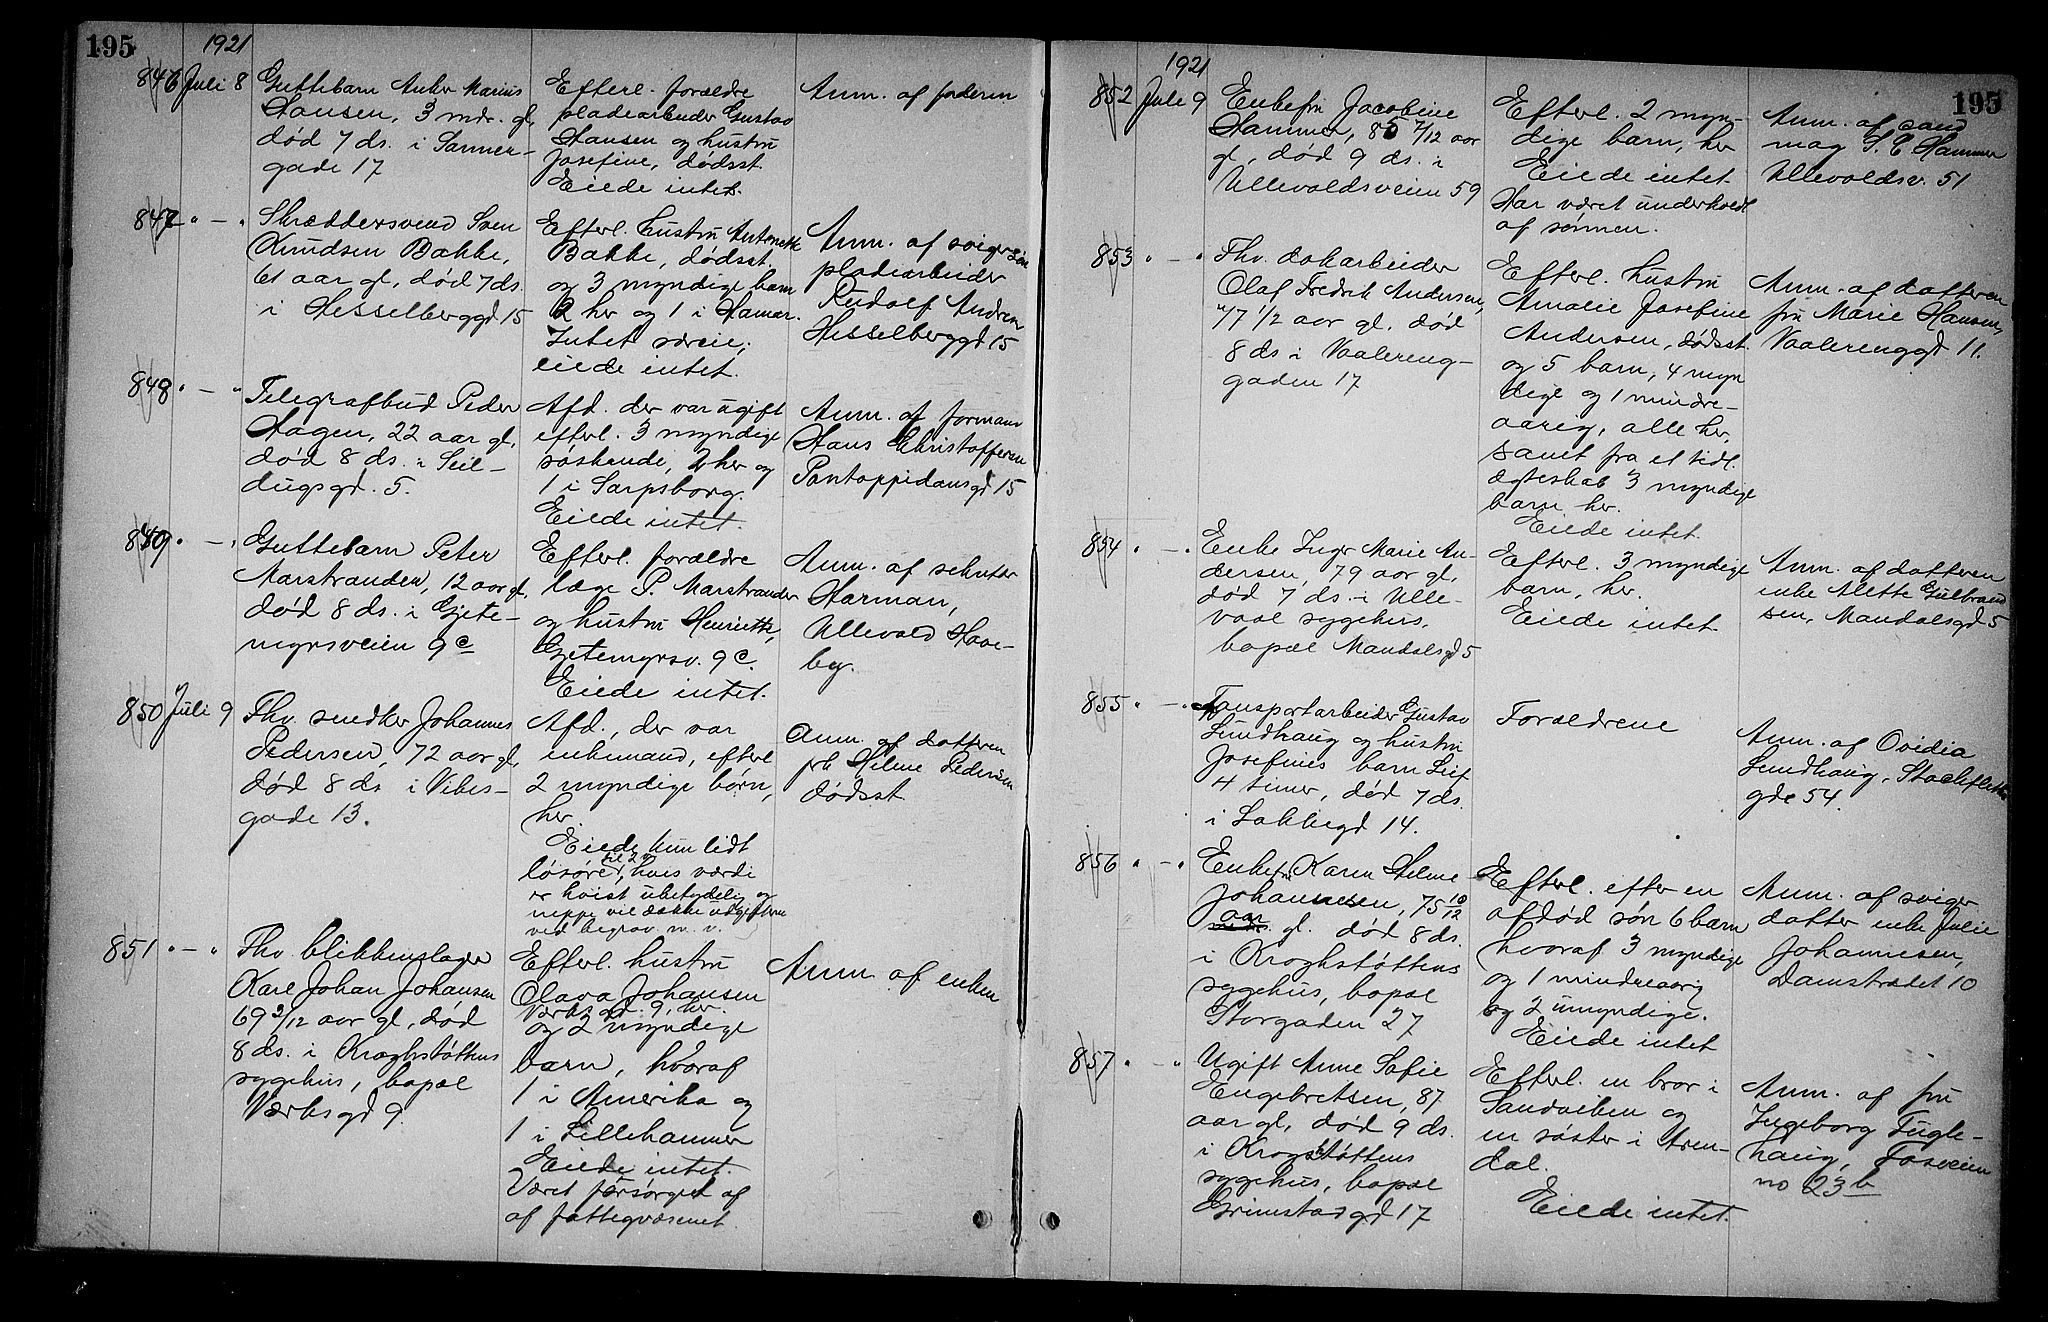 195
1921
846 Juli 8
Guttebarn Anker Marius
Hansen, 3 mdr. gl,
død 7 ds. i Sanner-
gade 17
Efterl. forældre
pladearbeider Gustav
Hansen og hustru
Josefine, dødsst.
Eiede intet.
Anm. af faderen
847 " — "
Skræddersvend Sven
Knudsen Bakke,
61 aar gl, død 7 ds.
i Hesselberggd 15
Efterl. hustru Antonette
Bakke, dødsst.
og 3 myndige barn
2 her og 1 i Hamar.
Intet særeie,
eiede intet.
Anm. af svigersøn
pladearbeider
Rudolf Andresen
Hesselberggd 15
848 " — "
Telegrafbud Peder
Hagen, 22 aar gl,
død 8 ds. i Seil-
dugsgd. 5.
Afd. der var ugift
efterl. 3 myndige
søskende, 2 her og
1 i Sarpsborg.
Eiede intet.
Anm. af formand
Hans Christoffersen
Pontoppidansgd 15
849 " — "
Guttebarn Peter
Marstrander, 12 aar gl,
død 8 ds. i Gjete-
myrsveien 9c
Efterl. forældre
læge P. Marstrander
og hustru Henriette,
Gjetemyrsv. 9c.
Eiede intet.
Anm. af sekretær
Harman,
Ullevold Have-
by.
850 Juli 9
Fhv. snedker Johannes
Pedersen, 72 aar gl,
død 8 ds i Vibes-
gade 13.
Afd., der var
enkemand, efterl
2 myndige børn,
her.
Eiede kun lidt
løsøre, hvis værdi
er høist ubetydelig og
neppe vil dække udgifterne
ved begrav. m. v.
Anm. af datteren
frk Helene Pedersen
dødsst.
851 " — "
Fhv. blikkenslager
Karl Johan Johansen
69 2/12 aar gl, død
8 ds. i Kroghstøttens
sygehus, bopæl
Værksgd 9.
Efterl. hustru
Olava Johansen
Værksgd. 9, her.
og 2 myndige
barn, hvoraf
1 i Amerika og
1 i Lillehammer
Eiede intet.
Været forsørget af
af fattigvæsenet.
Anm. af enken
195
1921
852 Juli 9
Enkefru Jacobine
Hammer, 85 7/12 aar
gl, død 9 ds. i
Ullevoldsveien 59
Efterl. 2 myn-
dige barn, her
Eiede intet
Har været underholdt
af sønnen.
Anm. af cand
mag S. C Hammer
Ullevoldsv. 51
853 " — "
Fhv. dokarbeider
Olaf Fredrik Andersen,
77 1/2 aar gl. død
8 ds i Vaalereng-
gaden 17
Efterl. hustru
Amalie Josefine
Andersen, dødsst.
og 5 barn, 4 myn
dige og 1 mindre-
aarig, alle her,
samt fra et tidl.
ægteskab 3 myndige
barn her.
Eiede intet.
Anm. af datteren
fru Marie Hansen,
Vaalerenggd 11.
854 " — "
Enke Inger Marie An-
dersen, 79 aar gl,
død 7 ds. i Ulle-
vaal sygehus,
bopæl Mandalsgd 5
Efterl. 3 myndige
barn, her.
Eiede intet
Anm. af datteren
enke Alette Gulbrand
sen, Mandalsgd 5
855 " — "
Transportarbeider Gustav
Lundhaug og hustru
Josefines barn Leif
4 timer, død 7 ds.
i Lakkegd 14.
Forældrene
Anm. af Ovidia
Lundhaug, Stockfleths
gde 54.
856 " — "
Enkefr. Karen Helene
Johannesen, 75 10/12
aar gl. død 8 ds.
i Kroghstøttens
sygehus, bopæl
Storgaden 27
Efterl. efter en
afdød søn 6 barn
hvoraf 3 myndige
og 1 mindreaarig
og 2 umyndige.
Eiede intet
Anm. af sviger
datter enke Julie
Johannesen,
Damstrædet 10
857 " — "
Ugift Anne Sofie
Engebretsen, 87
aar gl, død 9 ds.
i Krogstøttens
sygehus, bopæl
Grimstadgd 17
Efterl. en bror i
Sandviken og
en søster i Aren-
dal.
Eiede intet.
Anm. af fru
Ingeborg Fugle-
haug, Fosveien
no 23 b